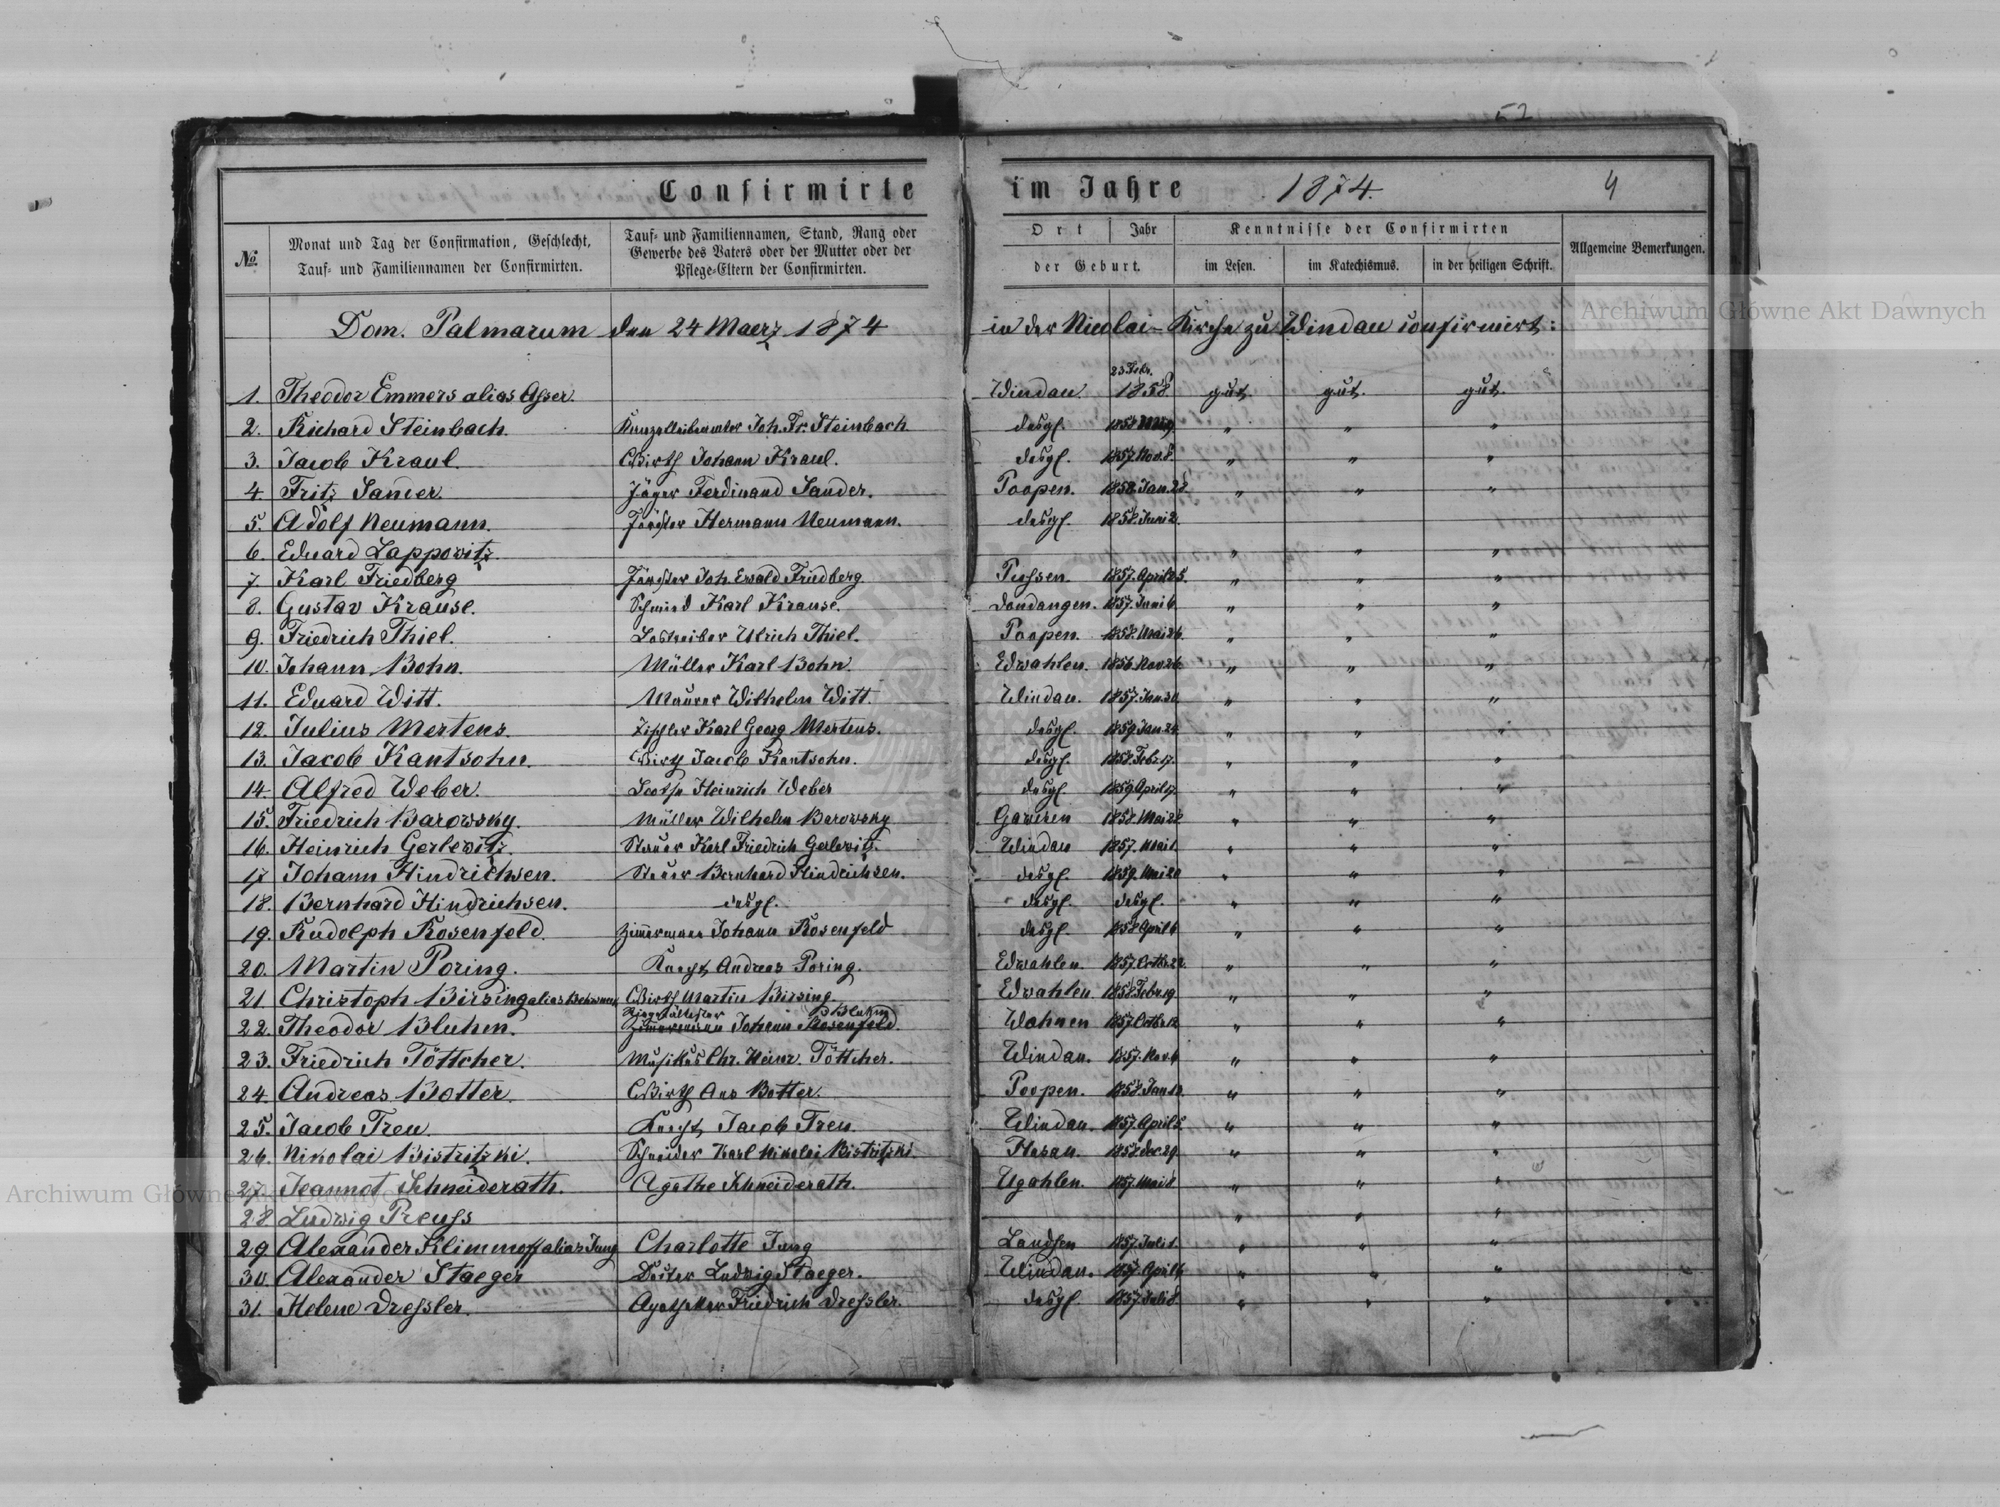 52
Confirmirte im Jahre 1874. 4
№ Monat und Tag der Confirmation, Geschlecht, Tauf- und Familiennamen der Confirmirten.
Tauf- und Familiennamen, Stand, Rang oder Gewerbe des Vaters oder der Mutter oder der Pflege-Eltern der Confirmirten.
Ort Jahr der Geburt.
Kenntnisse der Confirmirten
im Lesen. im Katechismus. in der heiligen Schrift.
Allgemeine Bemerkungen.
Dom. Palmarum den 24 Maerz 1874 in der Nicolai-Kirche zu Windau confirmirt:
1. Theodor Emmers alias Asser. Windau. 23 Febr. 1858. gut. gut. gut.
2. Richard Steinbach. Joh. Fr. Steinbach desgl. " " "
3. Jacob Kraul. Wirth Johann Kraul. desgl. 1857. Nov. 8. " " "
4 Fritz Sander. Jäger Ferdinand Sander. Poopen. 1858. Jan. 28. " " "
5. Adolf Neumann. Förster Hermann Neumann. desgl. 1858. Juni 2.
6. Eduard Lappowitz. " " "
7. Karl Friedberg Förster Joh. Ewald Friedberg Pussen. 1857. April 25. " " "
8. Gustav Krause. Schmied Karl Krause. Dondangen. 1857. Juni 6. " " "
9. Friedrich Thiel. Lostreiber Ulrich Thiel. Poopen. 1858. Mai 26. " " "
10. Johann Bohn. Müller Karl Bohn. Edwahlen. 1856. Nov. 26. " " "
11. Eduard Witt. Maurer Wilhelm Witt. Windau. 1857. Jan. 30. " " "
12. Julius Mertens. Tischler Karl Georg Mertens. desgl. 1859. Jan. 24. " " "
13. Jacob Kantsohn. Wirth Jacob Kantsohn. desgl. 1858. Febr. 17. " " "
14. Alfred Weber. Lootse Heinrich Weber desgl. 1859. April 17. " " "
15. Friedrich Barowsky. Müller Wilhelm Barowsky 1858. Mai 28 " " "
16. Heinrich Gerlewitz. Karl Friedrich Gerlewitz. Windau 1857. Mai 1. " " "
17 Johann Hindrichsen. Bernhard Hindrichsen. desgl. 1859. Mai 20 " " "
18. Bernhard Hindrichsen. desgl. desgl. desgl. " " "
19. Rudolph Rosenfeld. Zimmermann Johann Rosenfeld desgl. 1858. April 6 " " "
20. Martin Poring. Knecht Andreas Poring. Edwahlen. 1857. Octbr. 22. " " "
21. Christoph Birsing alias Wirth Martin Birsing. Edwahlen. 1858. Febr. 19. " " "
22. Theodor Bluhm. Zimmermann Johann Rosenfeld. Bluhm Wohnen 1857. Octbr. 12 " " "
23. Friedrich Töttcher. Musikus Chr. Heinr. Töttcher. Windau. 1857. Nov. 6 " " "
24. Andreas Botter. Wirth Ans Botter. Poopen. 1858. Jan. 12. " " "
25. Jacob Treu. Knecht Jacob Treu. Windau. 1857. April 5. " " "
26. Nikolai Bistritzki. Schneider Karl Nikolai Bistritzki. Hasau. 1858. Dec. 29. " " "
27. Jeannot Schneiderath. Agathe Schneiderath. Ugahlen. 1857. Mai 8. " " "
28 Ludwig Preuss " " "
29. Alexander Klimmoff alias Jung Charlotte Jung Landsen 1857. Juli 1. " " "
30. Alexander Staeger Ludwig Staeger. Windau. April 6 " " "
31. Helene Dressler. Apotheker Friedrich Dressler. desgl. 1857. Juli 8. " " "
Archiwum Główne Akt Dawnych
Archiwum Główne Akt Dawnych